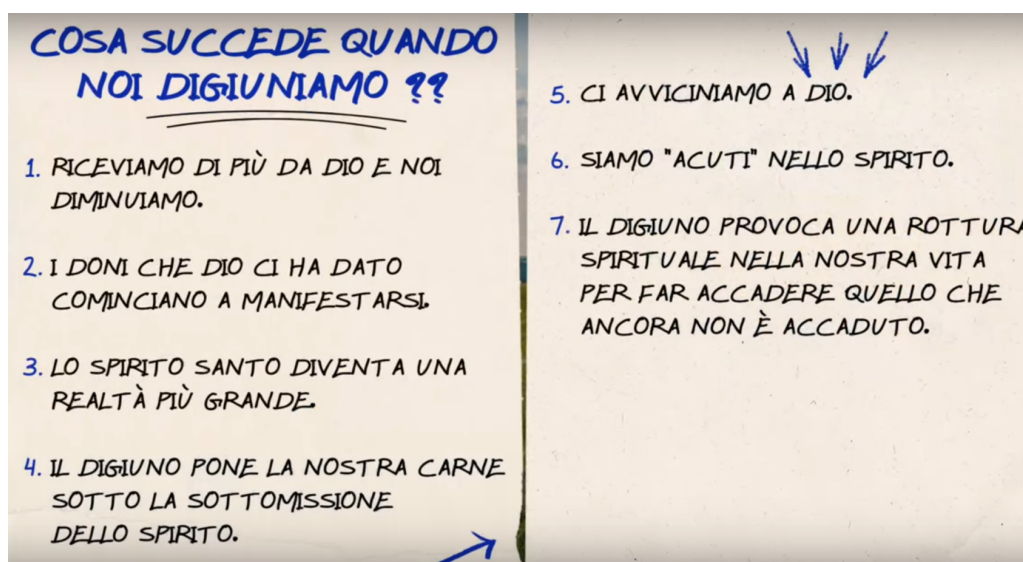 COSA SUCCEDE QUANDO
NOI DIGIUNIAMO ??
1. RICEVIAMO DI PIÙ DA DIO E NOI
DIMINUIAMO.
2. I DONI CHE DIO CI HA DATO
COMINCIANO A MANIFESTARSI.
3. LO SPIRITO SANTO DIVENTA UNA
REALTÀ PIÙ GRANDE.
4. IL DIGIUNO PONE LA NOSTRA CARNE
SOTTO LA SOTTOMISSIONE
DELLO SPIRITO.
5. CI AVVICINIAMO A DIO.
6. SIAMO "ACUTI" NELLO SPIRITO.
7. IL DIGIUNO PROVOCA UNA ROTTURA
SPIRITUALE NELLA NOSTRA VITA
PER FAR ACCADERE QUELLO CHE
ANCORA NON È ACCADUTO.